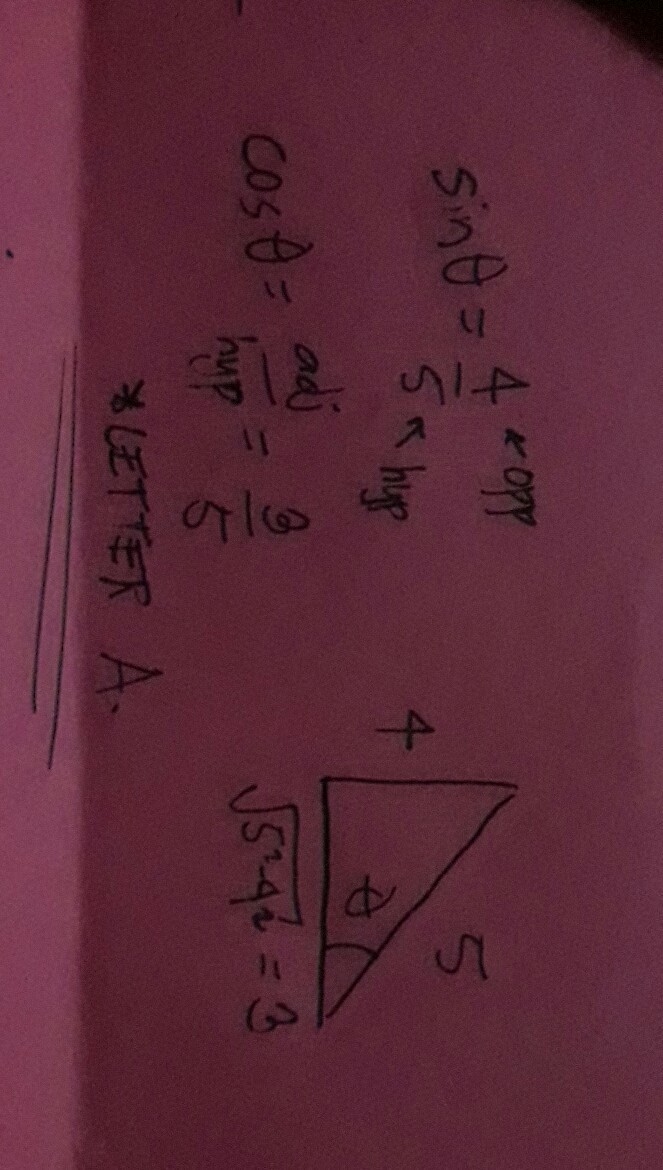 sinθ = 4/5 ← opp ← hyp
cosθ = adj/hyp = 3/5
*LETTER A.
4
5
θ
√5²-4² = 3